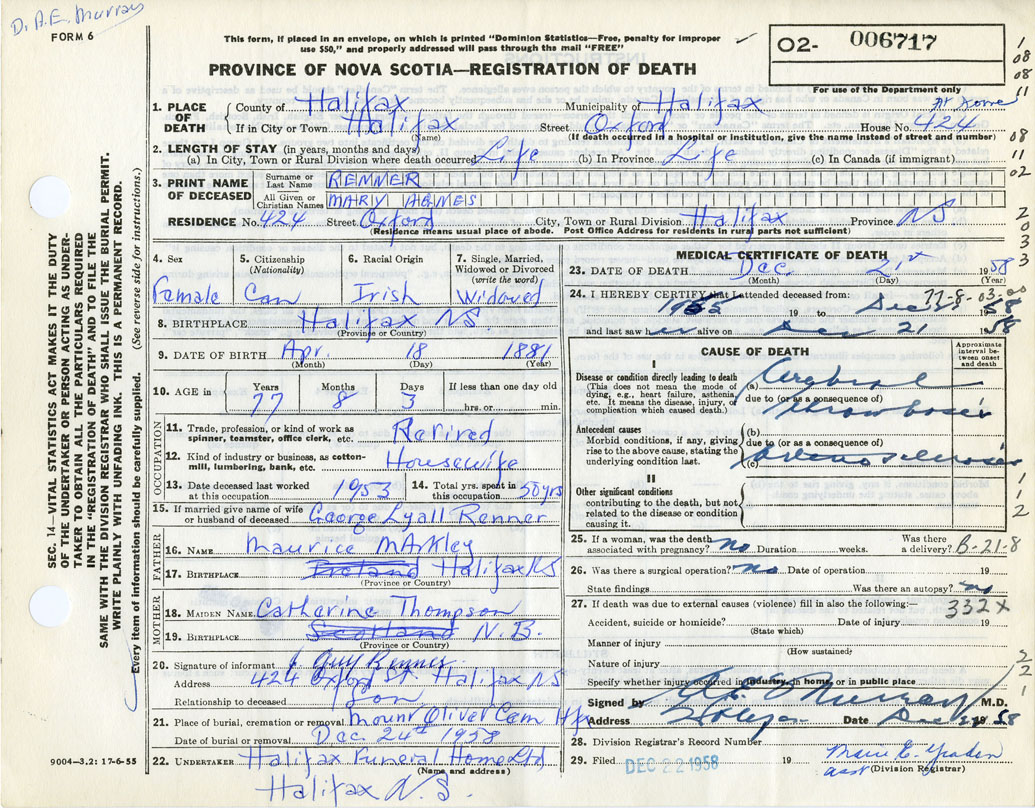 D. A.E. Murray
FORM 6
This form, if placed in an envelope, on which is printed "Dominion Statistics—Free, penalty for improper
use $50," and properly addressed will pass through the mail "FREE"
O2- 006717
PROVINCE OF NOVA SCOTIA—REGISTRATION OF DEATH
For use of the Department only
1. PLACE OF DEATH County of Halifax Municipality of Halifax At Home
If in City or Town Halifax Street Oxford House No. 424
(Name) (If death occurred in a hospital or institution, give the name instead of street and number)
2. LENGTH OF STAY (in years, months and days)
(a) In City, Town or Rural Division where death occurred Life (b) In Province Life (c) In Canada (if immigrant)
3. PRINT NAME OF DECEASED Surname or Last Name RENNER
All Given or Christian Names MARY AGNES
RESIDENCE No. 424 Street Oxford City, Town or Rural Division Halifax Province NS
(Residence means usual place of abode. Post Office Address for residents in rural parts not sufficient)
SEC. 14—VITAL STATISTICS ACT MAKES IT THE DUTY
OF THE UNDERTAKER OR PERSON ACTING AS UNDER-
TAKER TO OBTAIN ALL THE PARTICULARS REQUIRED
IN THE "REGISTRATION OF DEATH" AND TO FILE THE
SAME WITH THE DIVISION REGISTRAR WHO SHALL ISSUE THE BURIAL PERMIT.
WRITE PLAINLY WITH UNFADING INK. THIS IS A PERMANENT RECORD.
Every item of information should be carefully supplied. (See reverse side for instructions.)
4. Sex
Female
5. Citizenship
(Nationality)
Can
6. Racial Origin
Irish
7. Single, Married,
Widowed or Divorced
(write the word)
Widowed
8. BIRTHPLACE Halifax NS.
(Province or Country)
9. DATE OF BIRTH Apr. 18 1881
(Month) (Day) (Year)
10. AGE in Years 77 Months 8 Days 3 If less than one day old
hrs. or min.
OCCUPATION
11. Trade, profession, or kind of work as
spinner, teamster, office clerk, etc. Retired
12. Kind of industry or business, as cotton-
mill, lumbering, bank, etc. Housewife
13. Date deceased last worked
at this occupation 1953
14. Total yrs. spent in
this occupation 50yrs
15. If married give name of wife
or husband of deceased George Lyall Renner
FATHER
16. NAME Maurice MArkley
17. BIRTHPLACE Ireland Halifax NS
(Province or Country)
MOTHER
18. MAIDEN NAME Catherine Thompson
19. BIRTHPLACE Scotland N.B.
(Province or Country)
20. Signature of informant Guy Renner
Address 424 Oxford St. Halifax NS
Relationship to deceased Son
21. Place of burial, cremation or removal Mount Olivet Cem Hfx
Date of burial or removal Dec. 24th 1958
22. UNDERTAKER Halifax Funeral Home Ltd
(Name and address)
Halifax N.S.
9004—3.2: 17-6-55
MEDICAL CERTIFICATE OF DEATH
23. DATE OF DEATH Dec. 21st 1958
(Month) (Day) (Year)
77-8-03.00
24. I HEREBY CERTIFY that I attended deceased from:
1955 19 to Dec 21 1958
and last saw her alive on Dec 21 1958
CAUSE OF DEATH
Approximate
interval be-
tween onset
and death
I
Disease or condition directly leading to death
(This does not mean the mode of
dying, e.g., heart failure, asthenia,
etc. It means the disease, injury, or
complication which caused death.)
(a) Cerebral
due to (or as a consequence of)
thrombosis
Antecedent causes
Morbid conditions, if any, giving
rise to the above cause, stating the
underlying condition last.
(b)
due to (or as a consequence of)
(c) Arteriosclerosis
II
Other significant conditions
contributing to the death, but not
related to the disease or condition
causing it.
25. If a woman, was the death
associated with pregnancy? no Duration weeks. Was there
a delivery? B-21-8
26. Was there a surgical operation? no Date of operation 19
State findings Was there an autopsy? no
27. If death was due to external causes (violence) fill in also the following:— 332X
Accident, suicide or homicide? Date of injury 19
(State which)
Manner of injury
(How sustained)
Nature of injury
Specify whether injury occurred in industry, in home, or in public place
Signed by A E Murray M.D.
Address Halifax Date Dec 1958
28. Division Registrar's Record Number
29. Filed DEC 22 1958
asst (Division Registrar)
1
08
08
08
11
02
2
0
3
3
3
1
1
2
2
2
1